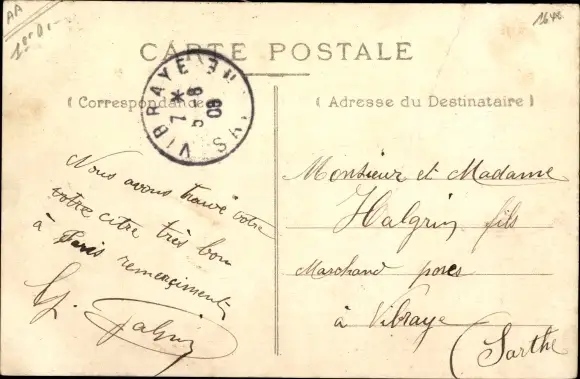 AA
1er D1-
164e
CARTE POSTALE
( Correspondance
( Adresse du Destinataire )
VIBRAYE
7 *
5 - 8
09
Nous avons trouvé votre
votre citre très bon
à Paris remerciments
Halgrin
Monsieur et Madame
Halgrin fils
Marchand porcs
à Vibraye
(Sarthe